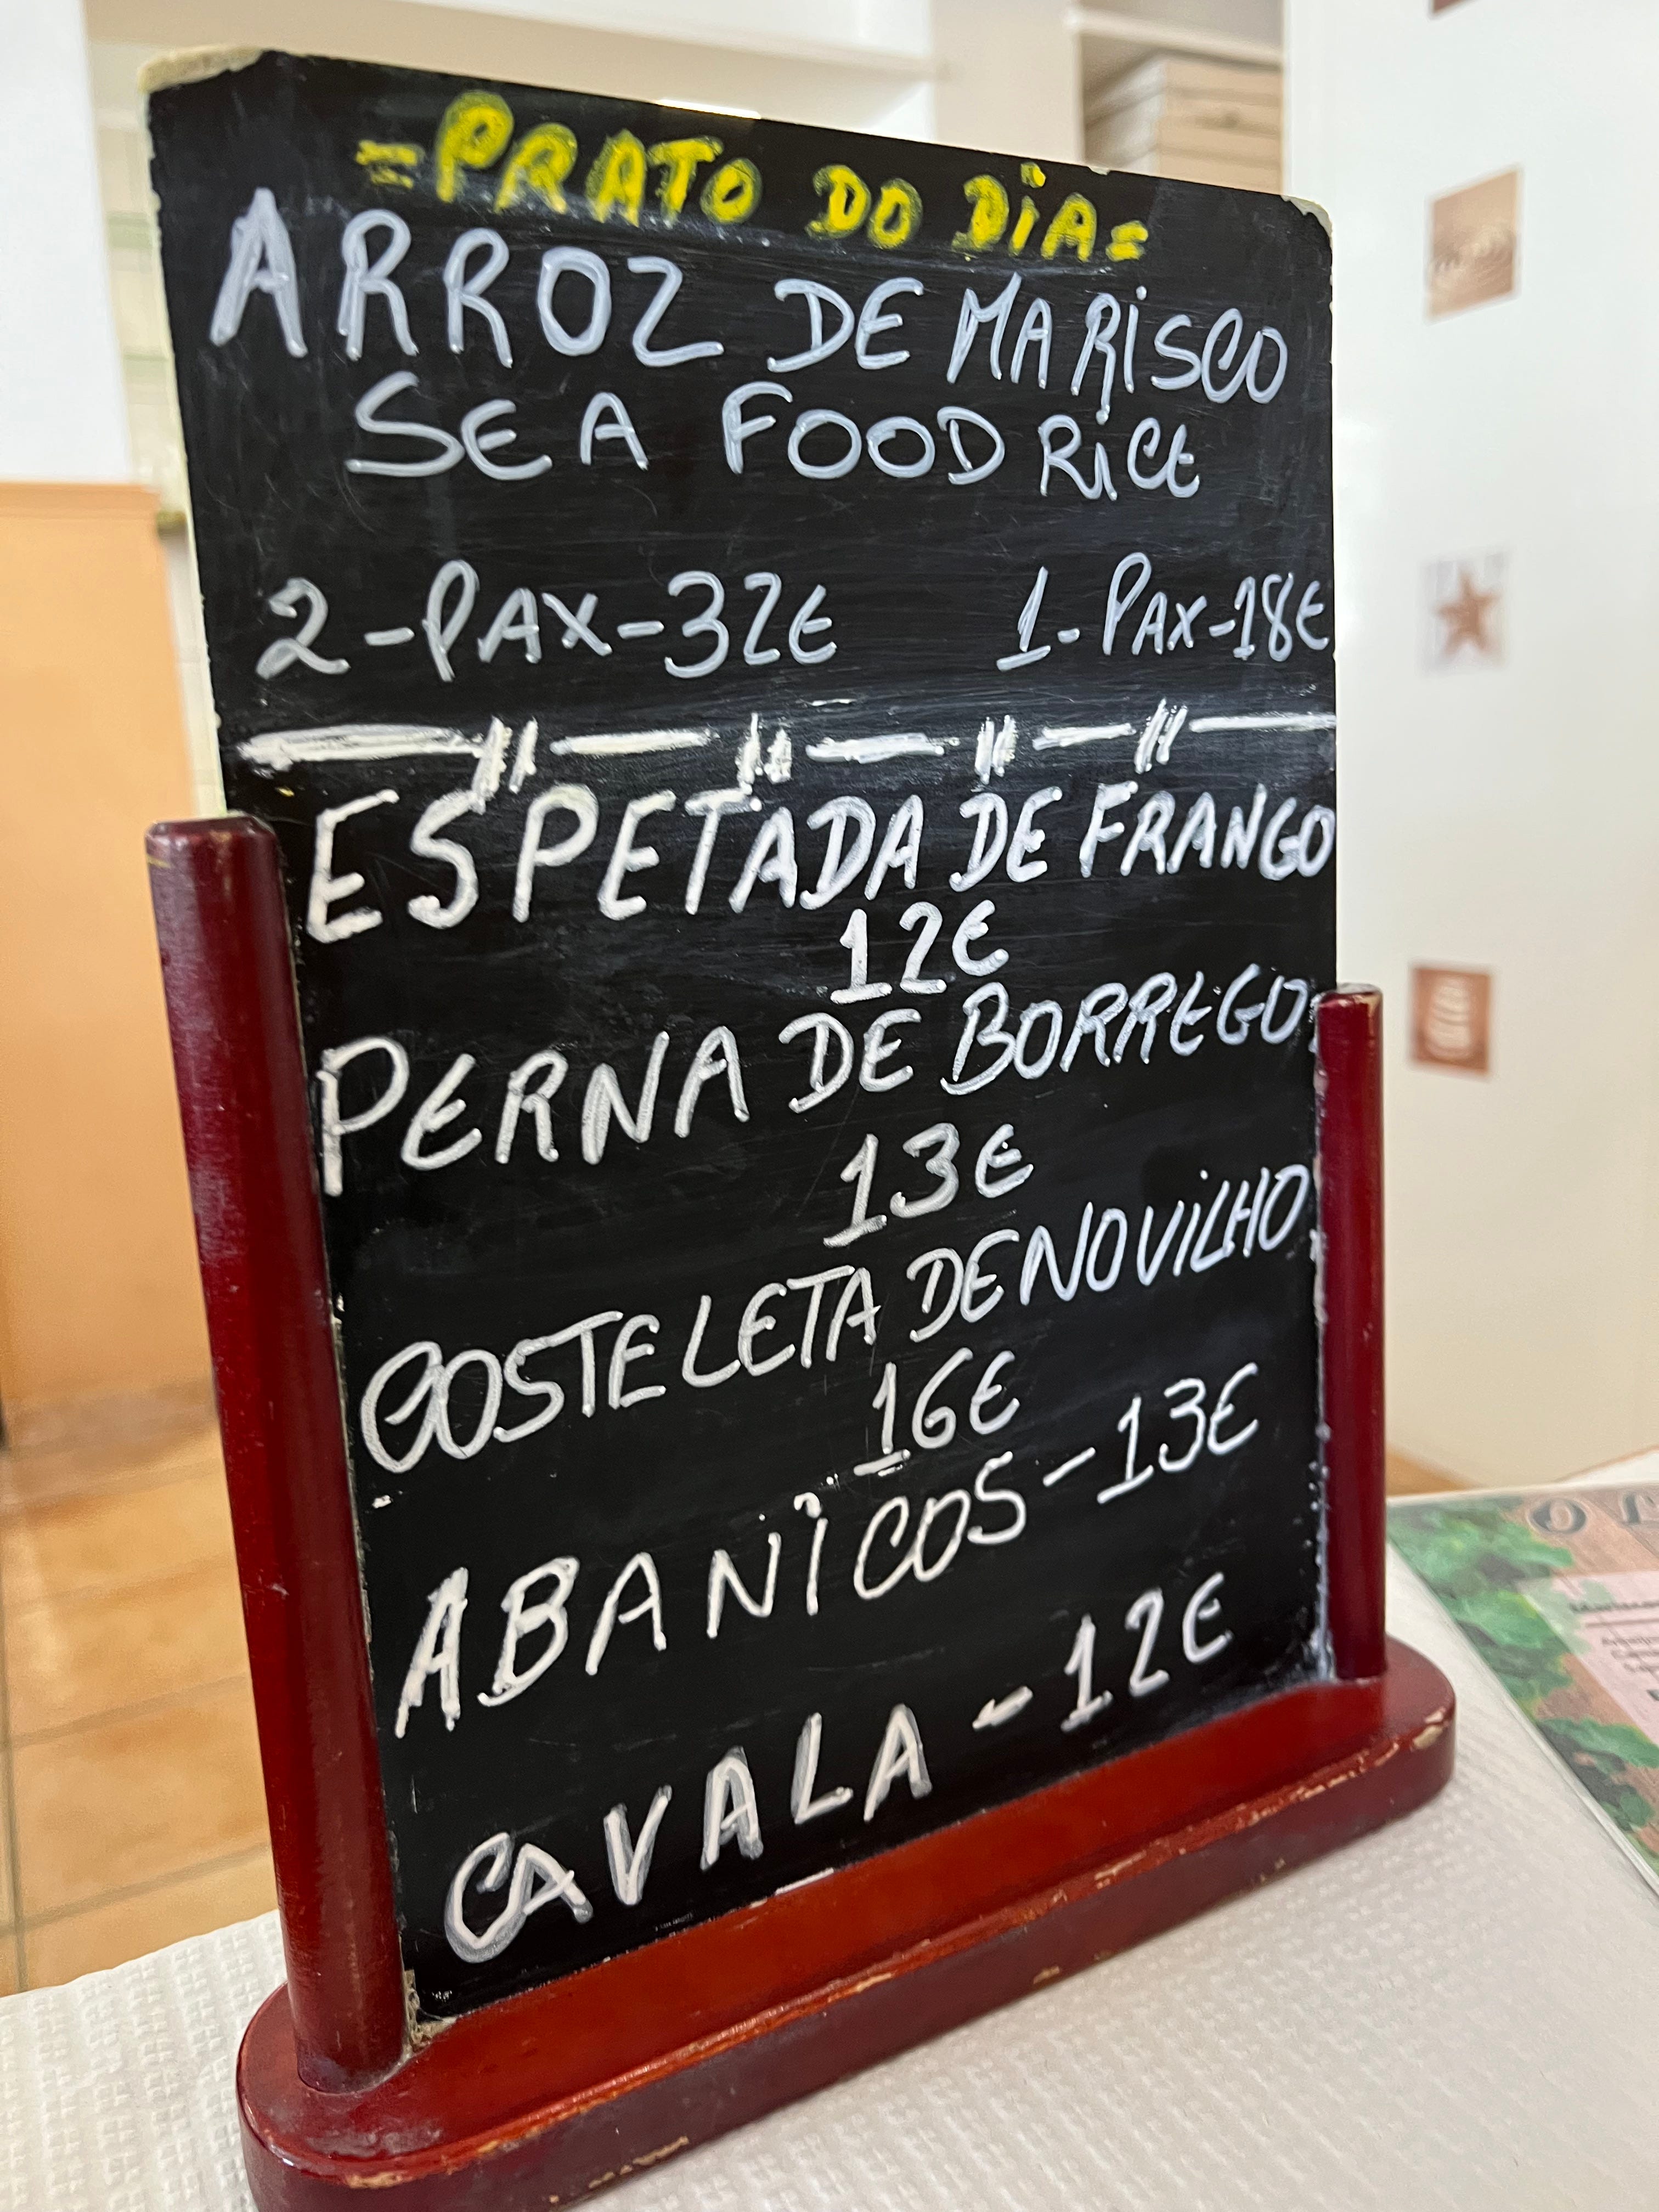 =PRATO DO DiA=
ARROZ DE MARiSCO
SEA FOOD RiCE
2-PAX-32€ 1-PAX-18€
ESPETADA DE FRANGO
12€
PERNA DE BORREGO
13€
COSTELETA DE NOViLHO
16€
ABANiCOS-13€
CAVALA-12€